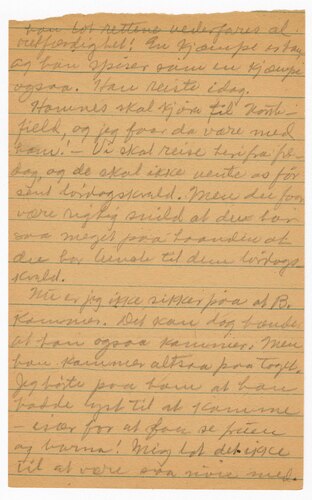 han lot rettens vederfares al
retfærdighet! En kjæmpe er han,
og han spiser som en kjæmpe
ogsaa. Han reiste idag.
Hannes skal kjøre til North-
field, og jeg faar da være med
ham! - Vi skal reise herifra fre-
dag, og de skal ikke vente os før
sent lørdagskveld. Men du faar
være rigtig snild at du har
saa meget paa haanden at
du har lunch til dem lørdags-
kveld.
Nu er jeg ikke sikker paa at B.
kommer. Det kan dog hænde
at han ogsaa kommer. Men
han kommer altsaa paa toget.
Jeg hørte paa ham at han
hadde lyst til at komme
- især for at faa se peien
og barna! Mig lot det ikke
til at være saa nøie med.